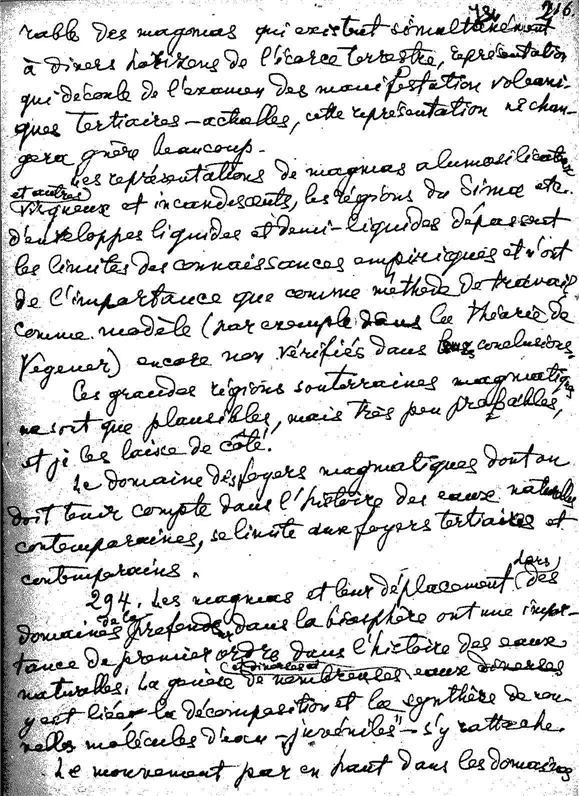 216.
rable des magmas qui existent simultanément
à divers horizons de l'écorce terrestre, représentation
qui découle de l'examen des manifestation volcani-
ques tertiaires – actuelles, cette représentation ne chan-
gera guère beaucoup.
Les représentations de magmas alumosilicatés
et autres
visqueux et incandescents, les régions du Sima etc.
d'enveloppes liquides et demi-liquides dépassent
les limites des connaissances empiriques et n'ont
de l'importance que comme méthode de travail,
comme modèle (par exemple dans la théorie de
Vegener) encore non vérifiés dans leurs conclusions.
Ces grandes régions souterraines magmatiques
ne soit que plausibles, mais très peu probables,
et je les laisse de côté.
Le domaine des foyers magmatiques dont on
doit tenir compte dans l'histoire des eaux naturelles
contemporaines, se limite aux foyers tertiaires et
contemporains.
294. Les magmas et leur déplacement dans des
domaines profonds dans la biosphère ont une impor-
tance de premier ordre dans l'histoire des eaux
naturelles. La genèse de nombreuses et diverses eaux
y est liée – la décomposition et la synthèse de nou-
velles molécules d'eau – "juvéniles" – s'y rattache.
Le mouvement par en haut dans les domaines